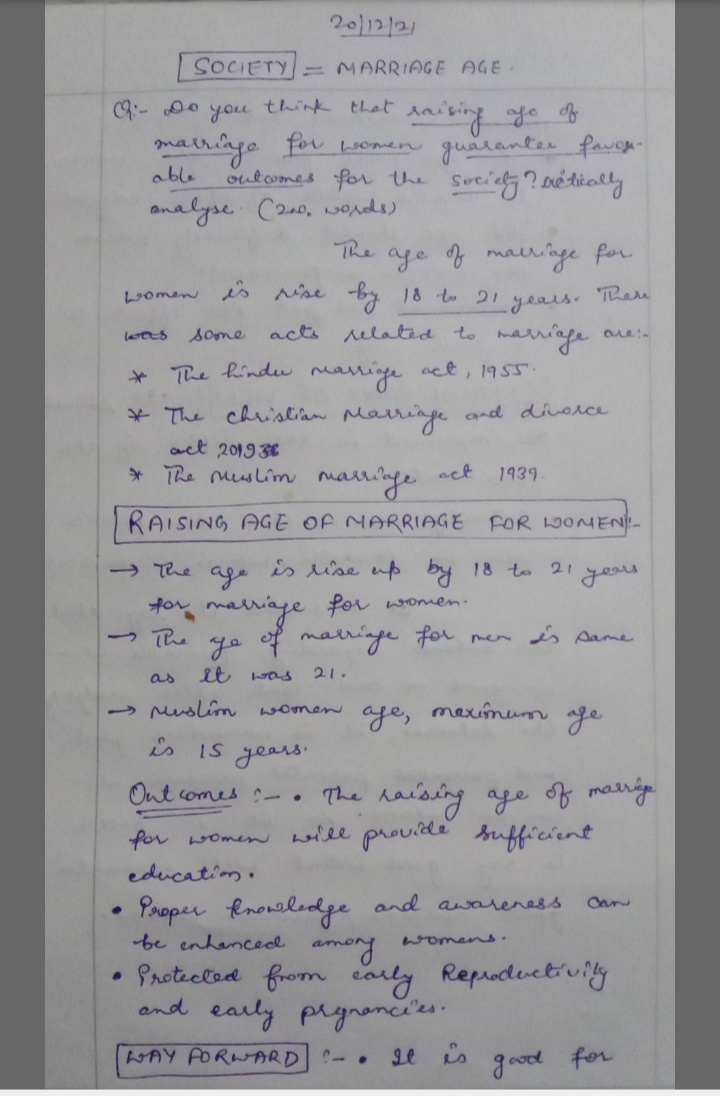 20/12/21
SOCIETY = MARRIAGE AGE.
Q:- Do you think that raising age of
marriage for women guarantee favor-
able outcomes for the society? critically
analyse. (200. words)
The age of marriage for
women is rise by 18 to 21 years. There
was some acts related to marriage are:-
* The hindu marriage act, 1955.
* The christian Marriage and divorce
act
* The Muslim marriage act 1939.
RAISING AGE OF MARRIAGE FOR WOMEN:-
→ The age is rise up by 18 to 21 years
for marriage for women.
→ The age of marriage for men is same
as it was 21.
→ Muslim women age, maximum age
is 15 years.
Outcomes :- • The raising age of marriage
for women will provide sufficient
education.
• Proper knowledge and awareness can
be enhanced among womens.
• Protected from early Reproductivity
and early prgnancies.
WAY FORWARD :- • It is good for